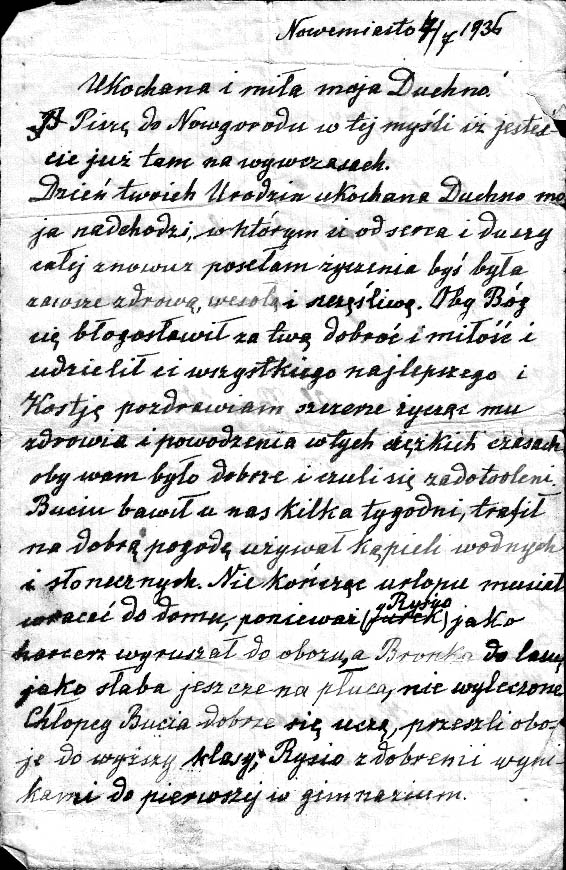 Nowemiasto 4/7 1936
Ukochana i miła moja Duchno!
Piszę do Nowgorodu w tej myśli iż jesteś-
cie już tam na wywczasach.
Dzień twoich Urodzin ukochana Duchno mo
ja nadchodzi, w którym ci od serca i duszy
całej znowuz posełam życzenia byś była
zawsze zdrową, wesołą i szczęśliwą. Oby Bóg
cię błogosławił za twą dobroć i miłość i
udzielił ci wszystkiego najlepszego i
Kostję pozdrawiam szczerze życząc mu
zdrowia i powodzenia w tych ciężkich czasach
oby wam było dobrze i czuli się zadowoleni
Buciu bawił u nas kilka tygodni, trafił
na dobrą pogodę używał kąpieli wodnych
i słonecznych. Nie kończąc urlopu musiał
wracać do domu, ponieważ (Rysyo) jako
harcerz wyruszał do obozu, a Bronka do lasu
jako słaba jeszcze na płuca, nie wyleczona
Chłopcy Bucia dobrze się uczą, przeszli obo-
je do wyższy klasy; Rysio z dobremi wyni-
kami do pierwszej w gimnazium.